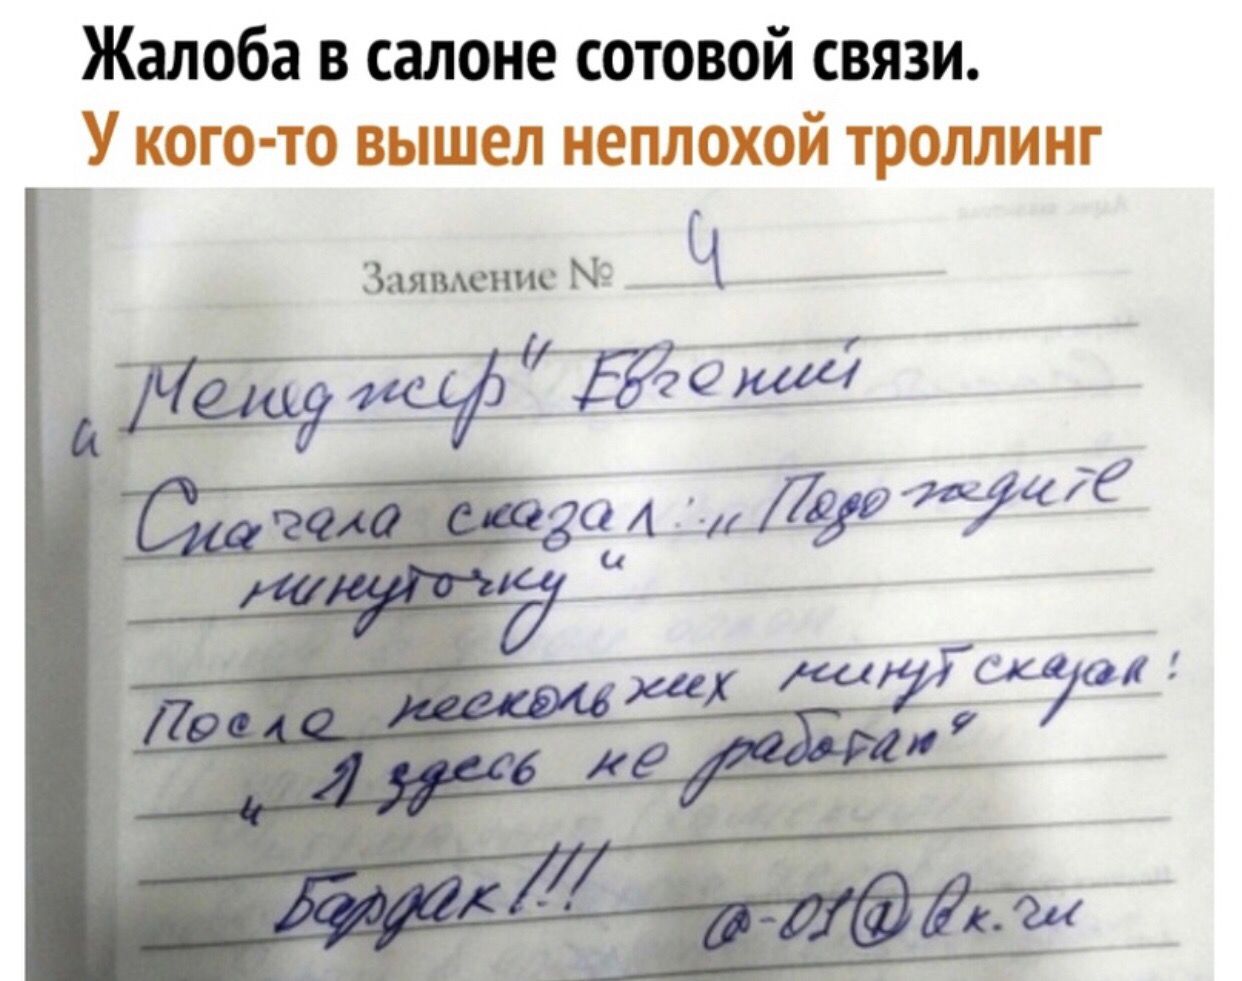 Жалоба в салоне сотовой связи.
У кого-то вышел неплохой троллинг
Заявление № 4
„Менеджер“ Евгений
Сначала сказал: „Подождите
минуточку“
После нескольких минут сказал:
„Я здесь не работаю“
Бардак!!!